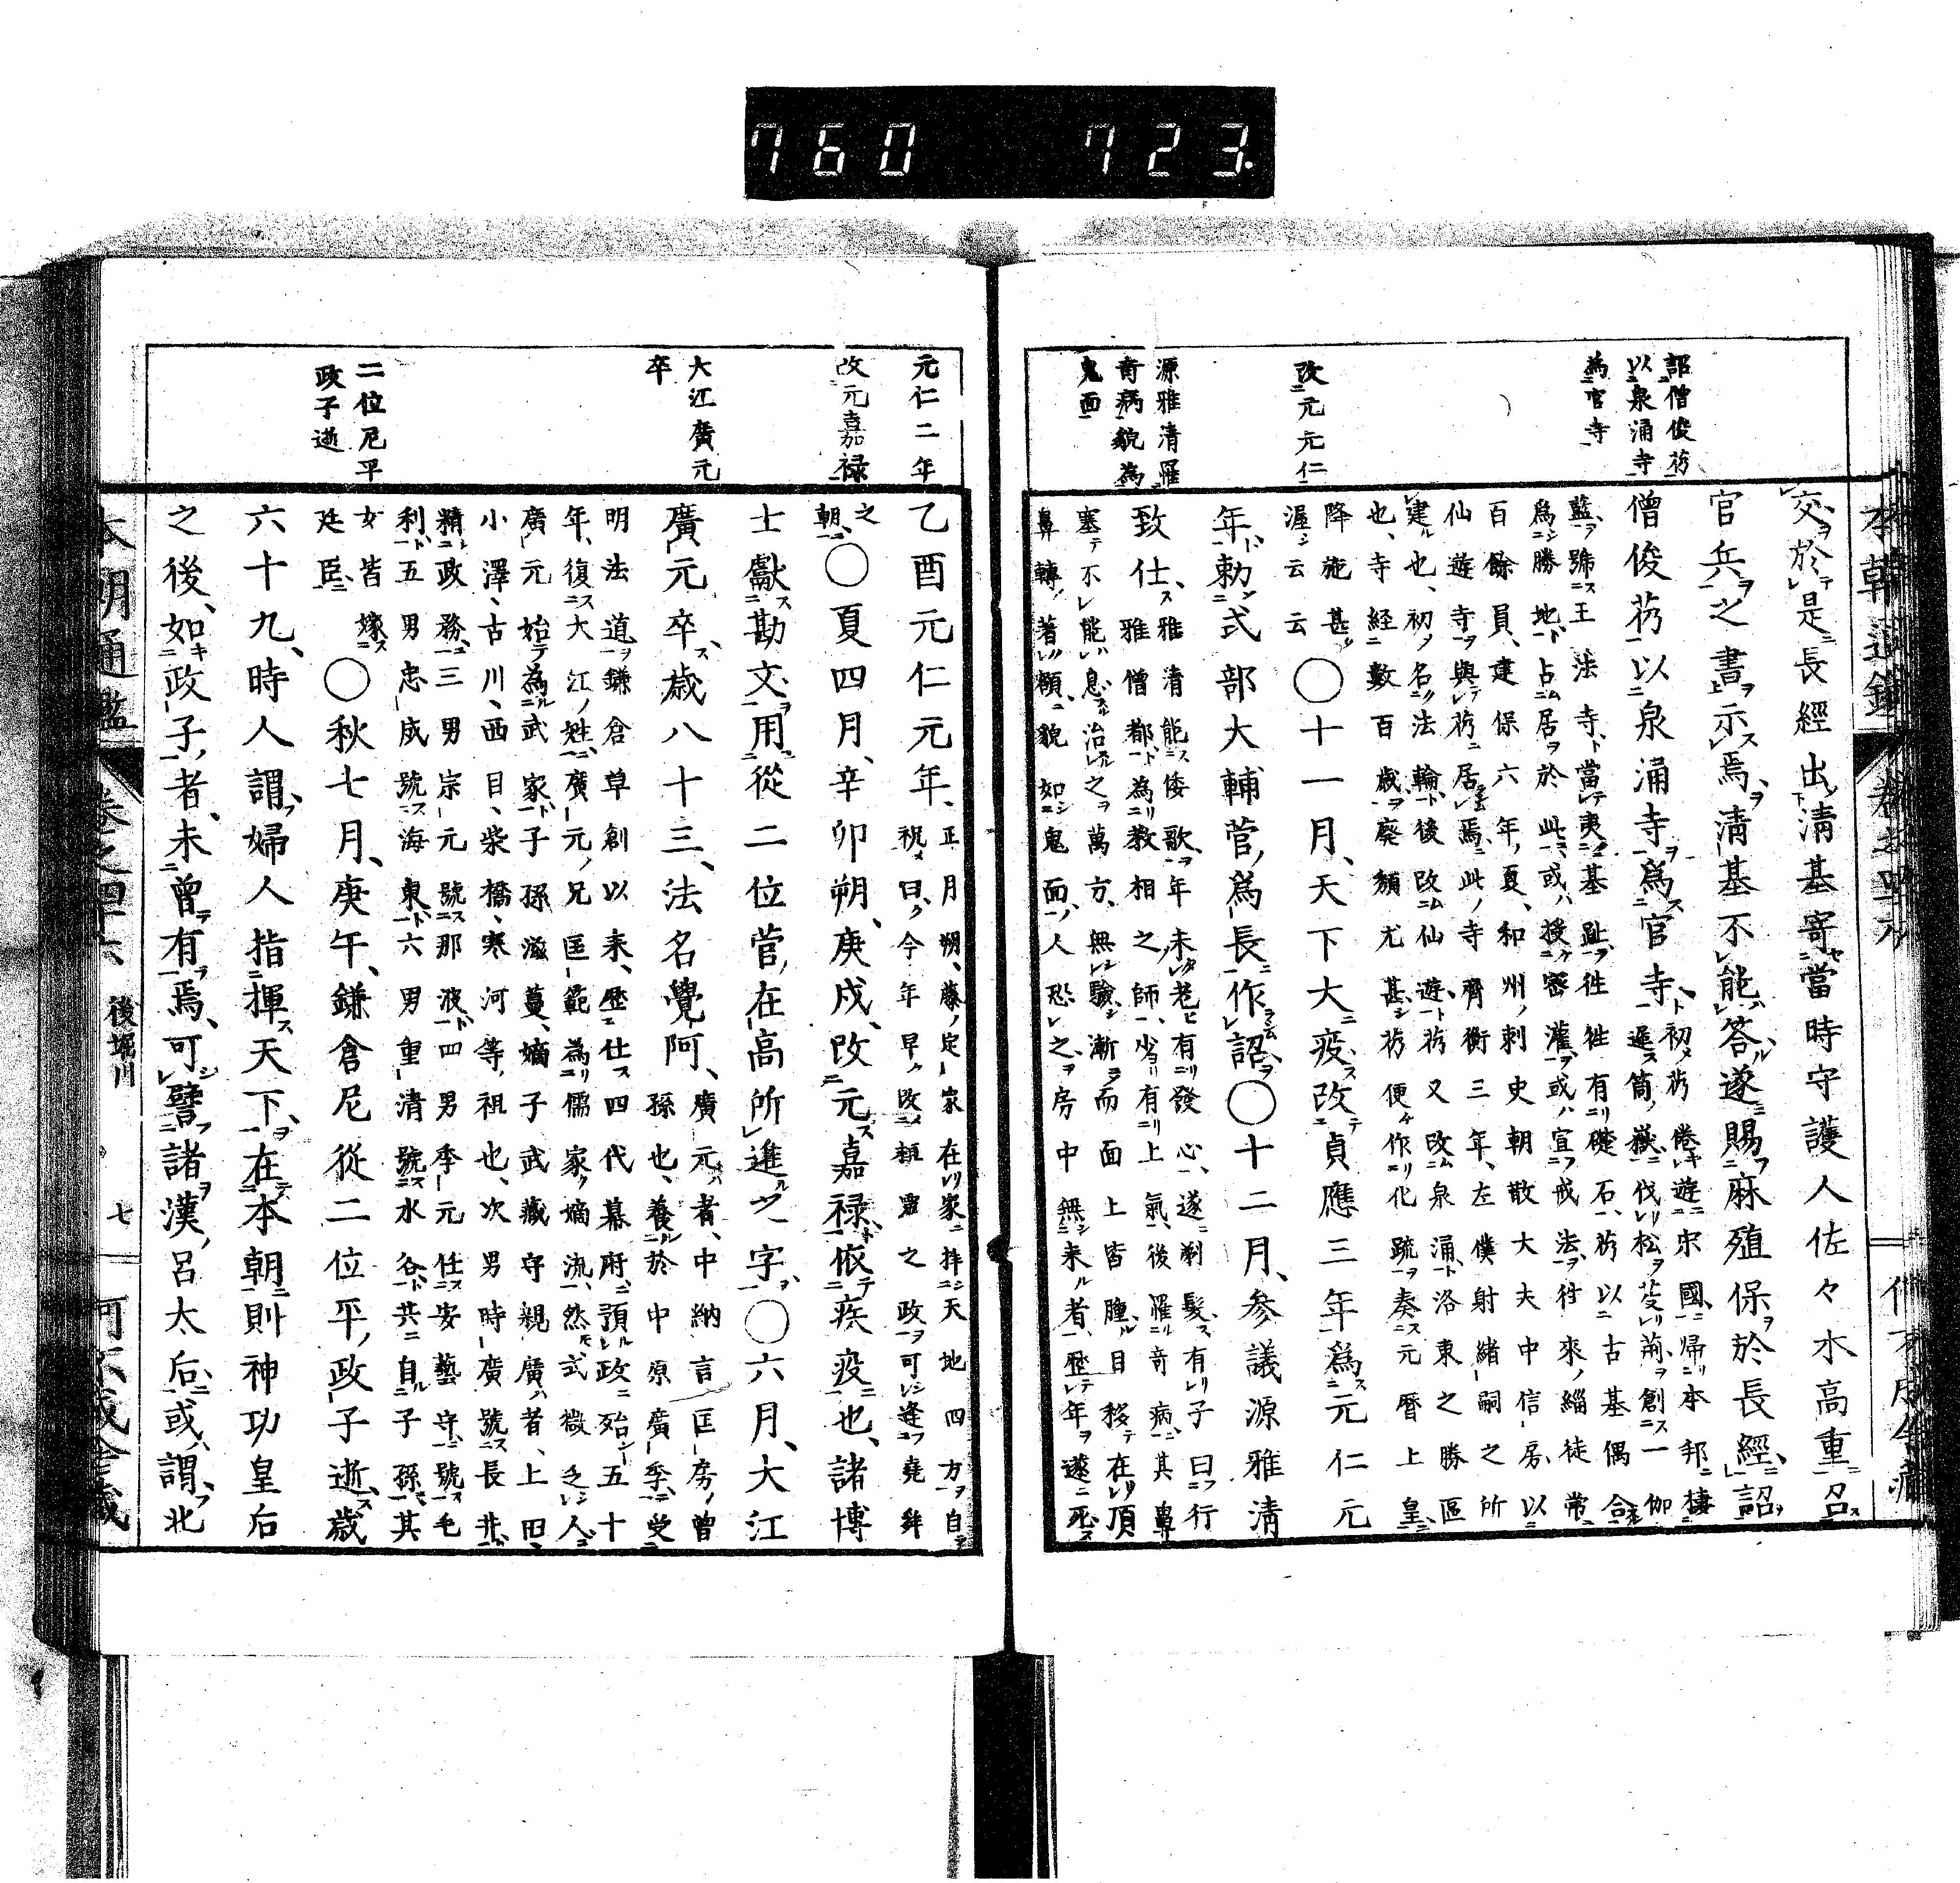 760 723.
詔僧俊芿
以泉涌寺
為官寺
改元元仁
源雅清罹
奇病貌為
鬼面
交於是長經出清基寄當時守護人佐々木高重召
官兵之書示焉清基不能答遂賜麻殖保於長經詔
僧俊芿以泉涌寺爲官寺
初芿倦遊宋國歸本邦棲
遲筒嶽伐松芟荊創一伽
藍號王法寺當夷基趾往往有礎石芿以古基偶合
爲勝地占居於此或授密灌或宣戒法往來緇徒常
百餘員建保六年夏和州刺史朝散大夫中信房以
仙遊寺與芿居焉此寺齊衡三年左僕射緒嗣之所
建也初名法輪後改仙遊芿又改泉涌洛東之勝區
也寺経數百歳廢頽尤甚芿便作化疏奏元暦上皇
降施甚
渥云云
〇十一月天下大疫改貞應三年爲元仁元
年勅式部大輔菅爲長作詔〇十二月參議源雅清
致仕
雅清能倭歌年未老有發心遂剃髮有子曰行
雅僧都為教相之師少有上氣後罹奇病其鼻
塞不能息治之萬方無驗漸而面上皆腫目移在頂
鼻轉著額貌如鬼面人恐之房中無来者歴年遂死
元仁二年
改元嘉禄
大江廣元
卒
二位尼平
政子逝
乙酉元仁元年
正月朔藤定家在家拝天地四方自
祝曰今年早改祖靈之政可逢堯舜
之
朝
〇夏四月辛卯朔庚戌改元嘉禄依疾疫也諸博
士獻勘文用從二位菅在高所進之字〇六月大江
廣元卒歳八十三法名覺阿
廣元者中納言匡房曾
孫也養於中原廣季受
明法道鎌倉草創以来歴仕四代幕府預政殆五十
年復大江姓廣元兄匡範為儒家嫡流然式微乏人
廣元始為武家子孫滋蔓嫡子武藏守親廣者上田
小澤古川西目柴橋寒河等祖也次男時廣號長井
精政務三男宗元號那波四男季元任安藝守號毛
利五男忠成號海東六男重清號水谷共自子孫其
女皆嫁
廷臣
〇秋七月庚午鎌倉尼從二位平政子逝歳
六十九時人謂婦人指揮天下在本朝則神功皇后
之後如政子者未曾有焉可譬諸漢呂太后或謂北
本朝通鑑 卷之四十六 後堀川 七